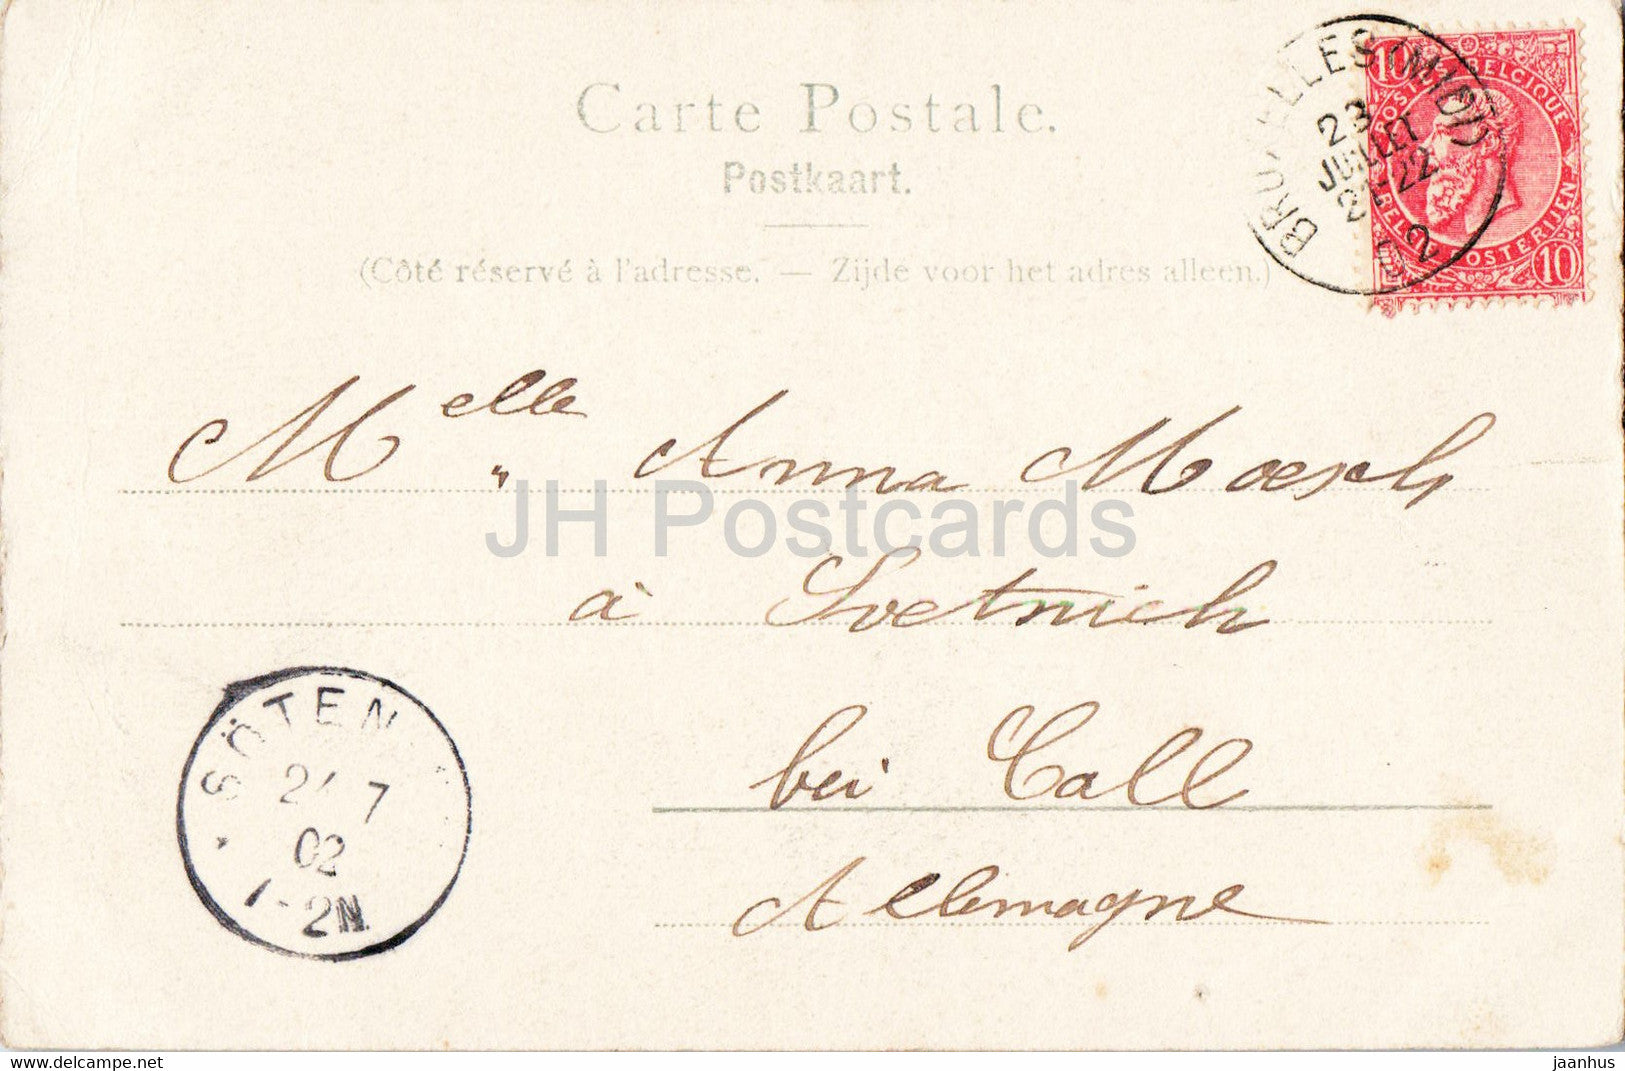 Carte Postale.
Postkaart.
(Côté réservé à l'adresse. — Zijde voor het adres alleen.)
BRUXELLES (MIDI)
23
JUILLET
22
2
10 10
POSTES BELGIQUE
BELGIË POSTERIJEN
Melle Anna Moesch
JH Postcards
à Soetnich
bei Call
Allemagne
SÖTEN
24 7
02
1-2N
www.delcampe.net
jaanhus